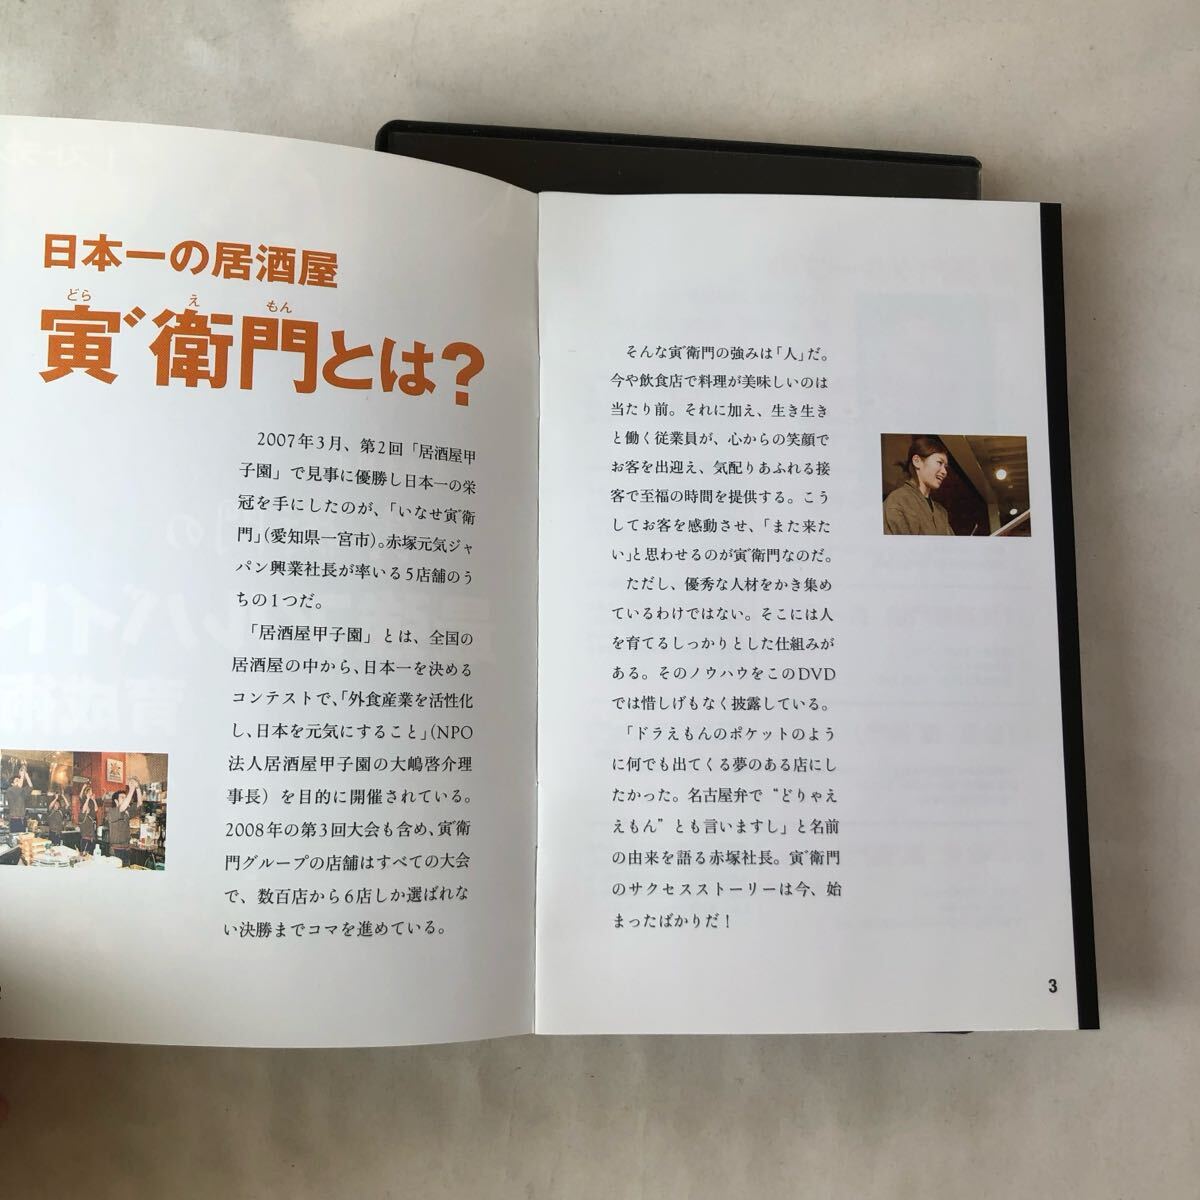 日本一の居酒屋
どら え もん
寅゛衛門とは?
2007年3月、第2回「居酒屋甲
子園」で見事に優勝し日本一の栄
冠を手にしたのが、「いなせ寅゛衛
門」(愛知県一宮市)。赤塚元気ジャ
パン興業社長が率いる5店舗のう
ちの1つだ。
「居酒屋甲子園」とは、全国の
居酒屋の中から、日本一を決める
コンテストで、「外食産業を活性化
し、日本を元気にすること」(NPO
法人居酒屋甲子園の大嶋啓介理
事長)を目的に開催されている。
2008年の第3回大会も含め、寅゛衛
門グループの店舗はすべての大会
で、数百店から6店しか選ばれな
い決勝までコマを進めている。
そんな寅゛衛門の強みは「人」だ。
今や飲食店で料理が美味しいのは
当たり前。それに加え、生き生き
と働く従業員が、心からの笑顔で
お客を出迎え、気配りあふれる接
客で至福の時間を提供する。こう
してお客を感動させ、「また来た
い」と思わせるのが寅゛衛門なのだ。
ただし、優秀な人材をかき集め
ているわけではない。そこには人
を育てるしっかりとした仕組みが
ある。そのノウハウをこのDVD
では惜しげもなく披露している。
「ドラえもんのポケットのよう
に何でも出てくる夢のある店にし
たかった。名古屋弁で“どりゃえ
えもん”とも言いますし」と名前
の由来を語る赤塚社長。寅゛衛門
のサクセスストーリーは今、始
まったばかりだ!
3